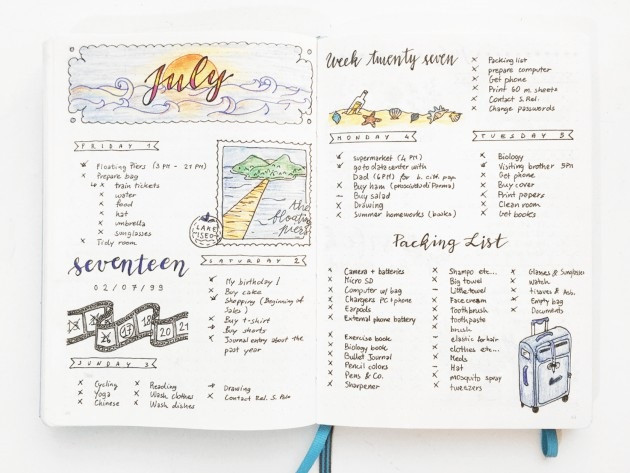 July
FRIDAY 1
Floating Piers (3 PM - 21 PM)
Prepare bag
train tickets
water
food
hat
umbrella
sunglasses
Tidy room
the
floating
piers
LAKE
ISEO
seventeen
02/07/99
16
17
18
20
21
SATURDAY 2
My birthday!
Buy cake
Shopping (Beginning of
Sales)
Buy t-shirt
Buy shorts
Journal entry about the
past year
SUNDAY 3
Cycling
Yoga
Chinese
Reading
Wash clothes
Wash dishes
Drawing
Contact Rel. S.
Week twenty seven
Packing list
prepare computer
Get phone
Print 60 m. sheets
Contact S. Rel.
Change passwords
MONDAY 4
supermarket (4 PM)
go to data center with
Dad (6 PM) for
Buy ham (prosciutto di Parma)
Buy salad
Drawing
Summer homeworks (books)
TUESDAY 5
Biology
Visiting brother 5PM
Get phone
Buy cover
Print papers
Clean room
Get books
Packing List
Camera + batteries
Micro SD
Computer w/ bag
Chargers PC + phone
Earpods
External phone battery
Exercise book
Biology book
Bullet Journal
Pencil colors
Pens & Co.
Sharpener
Shampo etc...
Big towel
Little towel
Face cream
Toothbrush
toothpaste
brush
elastic for hair
clothes etc...
Keds
Hat
mosquito spray
tweezers
Glasses & Sunglasses
Watch
Empty bag
Documents